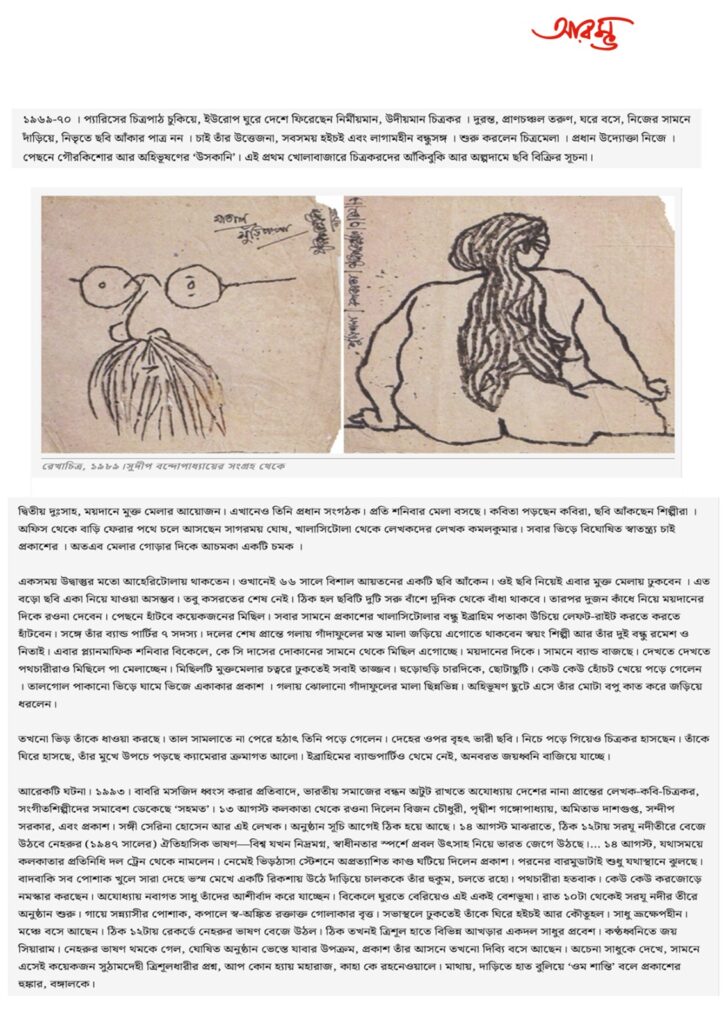 আরম্ভ
১৯৬৯-৭০ । প্যারিসের চিত্রপাঠ চুকিয়ে, ইউরোপ ঘুরে দেশে ফিরেছেন নির্মীয়মান, উদীয়মান চিত্রকর । দুরন্ত, প্রাণচঞ্চল তরুণ, ঘরে বসে, নিজের সামনে
দাঁড়িয়ে, নিভৃতে ছবি আঁকার পাত্র নন । চাই তাঁর উত্তেজনা, সবসময় হইচই এবং লাগামহীন বন্ধুসঙ্গ । শুরু করলেন চিত্রমেলা । প্রধান উদ্যোক্তা নিজে ।
পেছনে গৌরকিশোর আর অহিভূষণের ‘উসকানি’। এই প্রথম খোলাবাজারে চিত্রকরদের আঁকিবুকি আর অল্পদামে ছবি বিক্রির সূচনা।
রেখাচিত্র, ১৯৮৯ ।সুদীপ বন্দোপাধ্যায়ের সংগ্রহ থেকে
দ্বিতীয় দুঃসাহ, ময়দানে মুক্ত মেলার আয়োজন। এখানেও তিনি প্রধান সংগঠক। প্রতি শনিবার মেলা বসছে। কবিতা পড়ছেন কবিরা, ছবি আঁকছেন শিল্পীরা ।
অফিস থেকে বাড়ি ফেরার পথে চলে আসছেন সাগরময় ঘোষ, খালাসিটোলা থেকে লেখকদের লেখক কমলকুমার। সবার ভিড়ে বিঘোষিত স্বাতন্ত্র্য চাই
প্রকাশের । অতএব মেলার গোড়ার দিকে আচমকা একটি চমক ।
একসময় উদ্বাস্তুর মতো আহেরিটোলায় থাকতেন। ওখানেই ৬৬ সালে বিশাল আয়তনের একটি ছবি আঁকেন। ওই ছবি নিয়েই এবার মুক্ত মেলায় ঢুকবেন । এত
বড়ো ছবি একা নিয়ে যাওয়া অসম্ভব। তবু কসরতের শেষ নেই। ঠিক হল ছবিটি দুটি সরু বাঁশে দুদিক থেকে বাঁধা থাকবে। তারপর দুজন কাঁধে নিয়ে ময়দানের
দিকে রওনা দেবেন। পেছনে হাঁটবে কয়েকজনের মিছিল। সবার সামনে প্রকাশের খালাসিটোলার বন্ধু ইব্রাহিম পতাকা উচিয়ে লেফট-রাইট করতে করতে
হাঁটবেন। সঙ্গে তাঁর ব্যান্ড পার্টির ৭ সদস্য। দলের শেষ প্রান্তে গলায় গাঁদাফুলের মস্ত মালা জড়িয়ে এগোতে থাকবেন স্বয়ং শিল্পী আর তাঁর দুই বন্ধু রমেশ ও
নিতাই। এবার প্ল্যানমাফিক শনিবার বিকেলে, কে সি দাসের দোকানের সামনে থেকে মিছিল এগোচ্ছে। ময়দানের দিকে। সামনে ব্যান্ড বাজছে। দেখতে দেখতে
পথচারীরাও মিছিলে পা মেলাচ্ছেন। মিছিলটি মুক্তমেলার চত্বরে ঢুকতেই সবাই তাজ্জব। হুড়োহুড়ি চারদিকে, ছোটাছুটি। কেউ কেউ হোঁচট খেয়ে পড়ে গেলেন
। তালগোল পাকানো ভিড়ে ঘামে ভিজে একাকার প্রকাশ । গলায় ঝোলানো গাঁদাফুলের মালা ছিন্নভিন্ন। অহিভূষণ ছুটে এসে তাঁর মোটা বপু কাত করে জড়িয়ে
ধরলেন।
তখনো ভিড় তাঁকে ধাওয়া করছে। তাল সামলাতে না পেরে হঠাৎ তিনি পড়ে গেলেন। দেহের ওপর বৃহৎ ভারী ছবি। নিচে পড়ে গিয়েও চিত্রকর হাসছেন। তাঁকে
ঘিরে হাসছে, তাঁর মুখে উপচে পড়ছে ক্যামেরার ক্রমাগত আলো। ইব্রাহিমের ব্যান্ডপার্টিও থেমে নেই, অনবরত জয়ধ্বনি বাজিয়ে যাচ্ছে।
আরেকটি ঘটনা। ১৯৯৩। বাবরি মসজিদ ধ্বংস করার প্রতিবাদে, ভারতীয় সমাজের বন্ধন অটুট রাখতে অযোধ্যায় দেশের নানা প্রান্তের লেখক-কবি-চিত্রকর,
সংগীতশিল্পীদের সমাবেশ ডেকেছে ‘সহমত’। ১৩ আগস্ট কলকাতা থেকে রওনা দিলেন বিজন চৌধুরী, পৃথ্বীশ গঙ্গোপাধ্যায়, অমিতাভ দাশগুপ্ত, সন্দীপ
সরকার, এবং প্রকাশ। সঙ্গী সেরিনা হোসেন আর এই লেখক। অনুষ্ঠান সূচি আগেই ঠিক হয়ে আছে। ১৪ আগস্ট মাঝরাতে, ঠিক ১২টায় সরযূ নদীতীরে বেজে
উঠবে নেহরুর (১৯৪৭ সালের) ঐতিহাসিক ভাষণ—বিশ্ব যখন নিদ্রমগ্ন, স্বাধীনতার স্পর্শে প্রবল উৎসাহ নিয়ে ভারত জেগে উঠছে।... ১৪ আগস্ট, যথাসময়ে
কলকাতার প্রতিনিধি দল ট্রেন থেকে নামলেন। নেমেই ভিড়ঠাসা স্টেশনে অপ্রত্যাশিত কাণ্ড ঘটিয়ে দিলেন প্রকাশ। পরনের বারমুডাটাই শুধু যথাস্থানে ঝুলছে।
বাদবাকি সব পোশাক খুলে সারা দেহে ভস্ম মেখে একটি রিকশায় উঠে দাঁড়িয়ে চালককে তাঁর হুকুম, চলতে রহো। পথচারীরা হতবাক। কেউ কেউ করজোড়ে
নমস্কার করছেন। অযোধ্যায় নবাগত সাধু তাঁদের আশীর্বাদ করে যাচ্ছেন। বিকেলে ঘুরতে বেরিয়েও এই একই বেশভূষা। রাত ১০টা থেকেই সরযূ নদীর তীরে
অনুষ্ঠান শুরু। গায়ে সন্ন্যাসীর পোশাক, কপালে স্ব-অঙ্কিত রক্তাক্ত গোলাকার বৃত্ত। সভাস্থলে ঢুকতেই তাঁকে ঘিরে হইচই আর কৌতূহল। সাধু ভ্রূক্ষেপহীন।
মঞ্চে বসে আছেন। ঠিক ১২টায় রেকর্ডে নেহরুর ভাষণ বেজে উঠল। ঠিক তখনই ত্রিশূল হাতে বিভিন্ন আখড়ার একদল সাধুর প্রবেশ। কণ্ঠধ্বনিতে জয়
সিয়ারাম। নেহরুর ভাষণ থমকে গেল, ঘোষিত অনুষ্ঠান ভেস্তে যাবার উপক্রম, প্রকাশ তাঁর আসনে তখনো দিব্যি বসে আছেন। অচেনা সাধুকে দেখে, সামনে
এসেই কয়েকজন সুঠামদেহী ত্রিশূলধারীর প্রশ্ন, আপ কোন হ্যায় মহারাজ, কাহা কে রহনেওয়ালে। মাথায়, দাড়িতে হাত বুলিয়ে ‘ওম শান্তি’ বলে প্রকাশের
হুঙ্কার, বঙ্গালকে।